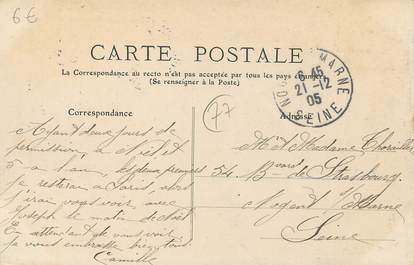 6€
CARTE POSTALE
La Correspondance au recto n'est pas acceptée par tous les pays étrangers
(Se renseigner à la Poste)
Correspondance
Adresse
MARNE
6 45
21-12
05
SEINE
77
Ayant deux jours de
permission à Noël et
à 1 an, les deux premiers
je resterai à Paris, alors
j'irai vous voir, avec
Joseph le matin de Noël
En attendant de vous voir
je vous embrasse bien tous
Camille
M. et Madame
54 Bvard de Strasbourg
Nogent s/ Marne
Seine